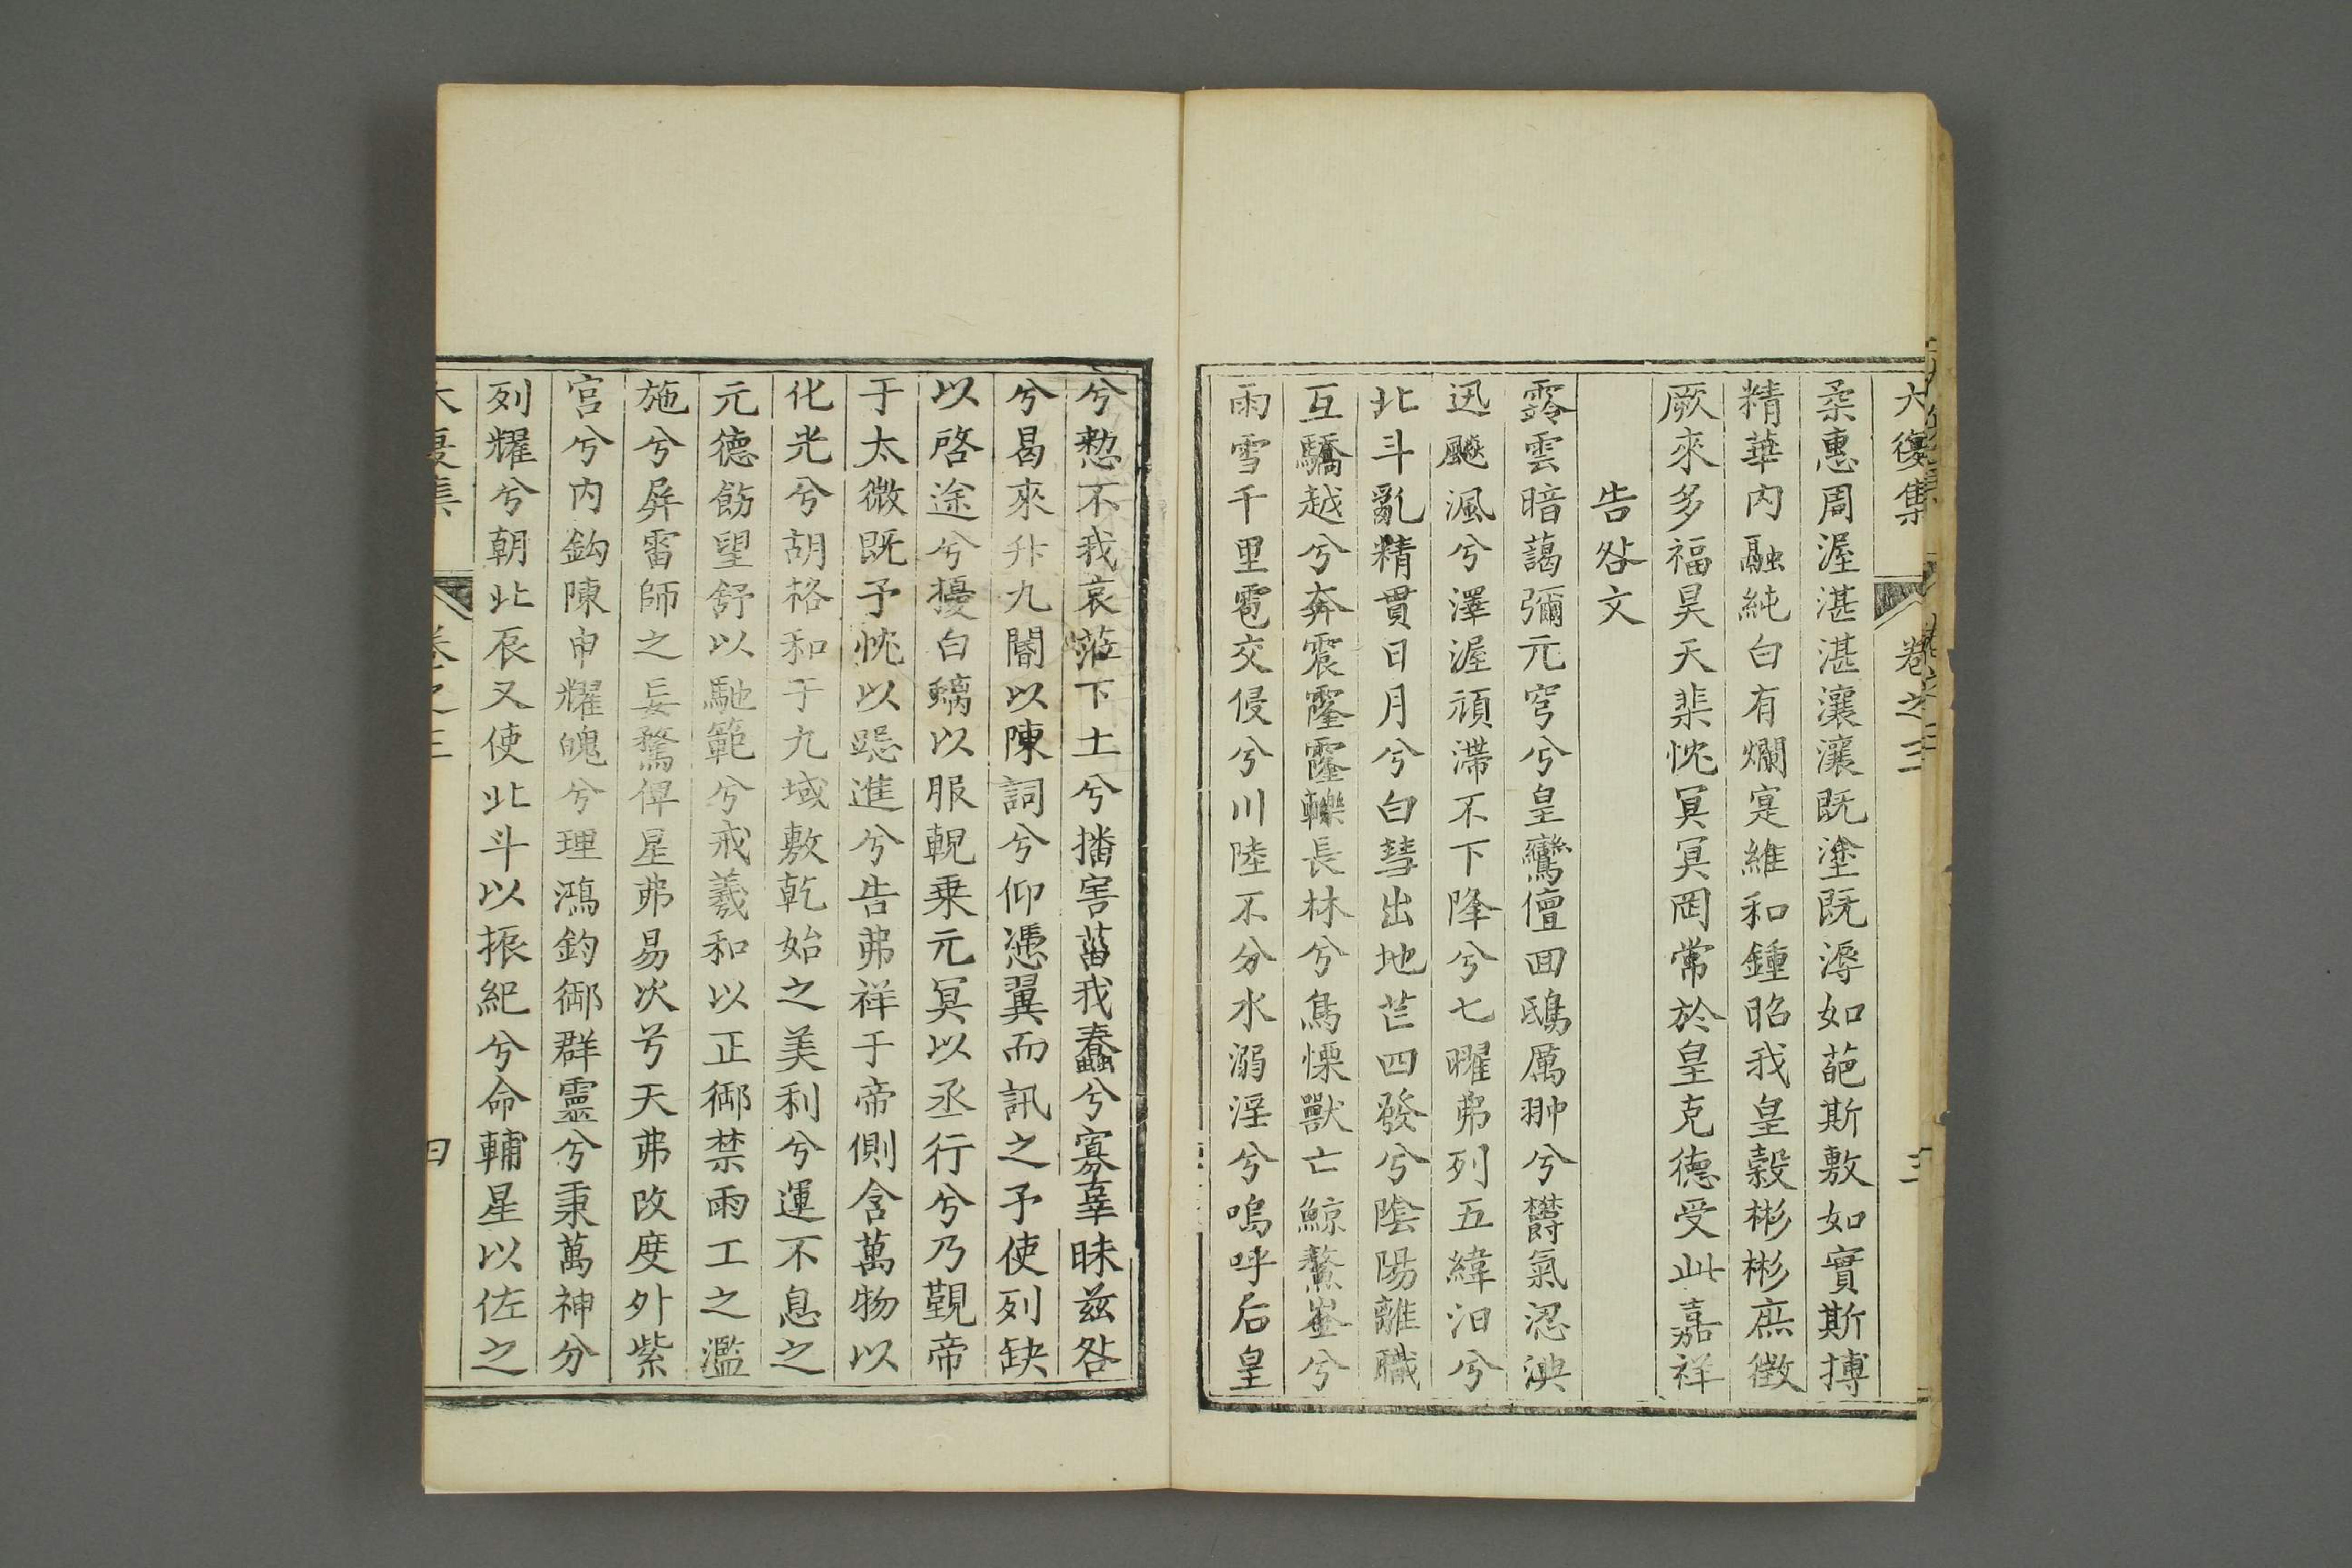 大復集 卷之三 三
柔惠周渥湛湛瀼瀼既塗既溽如葩斯敷如實斯摶
精華內融純白有爛寔維和鍾昭我皇穀彬彬庶徵
厥來多福昊天棐忱冥冥罔常於皇克德受此嘉祥
告咎文
霧雲暗藹彌元穹兮皇鸞儃回鴟厲翀兮欝氣涊淟
迅飈渢兮澤渥頑滯不下降兮七曜弗列五緯汩兮
北斗亂精貫日月兮白彗出地芒四發兮陰陽離職
互驕越兮奔震霳霳轢長林兮鳥慄獸亡鯨鰲崒兮
雨雪千里雹交侵兮川陸不分水溺淫兮嗚呼后皇
兮憖不我哀蒞下土兮播害菑我蠢兮寡辜昧茲咎
兮曷來升九閽以陳詞兮仰憑翼而訊之予使列缺
以啓途兮擾白螭以服輗乗元冥以丞行兮乃覲帝
于太微既予忱以跽進兮告弗祥于帝側含萬物以
化光兮胡格和于九域敷乾始之美利兮運不息之
元德飭望舒以馳範兮戒羲和以正御禁雨工之濫
施兮屏雷師之妄騖俾星弗易次兮天弗改度外紫
宮兮內鈎陳申耀魄兮理鴻鈞御群靈兮秉萬神分
列耀兮朝北辰又使北斗以振紀兮命輔星以佐之
大復集 卷之三 四